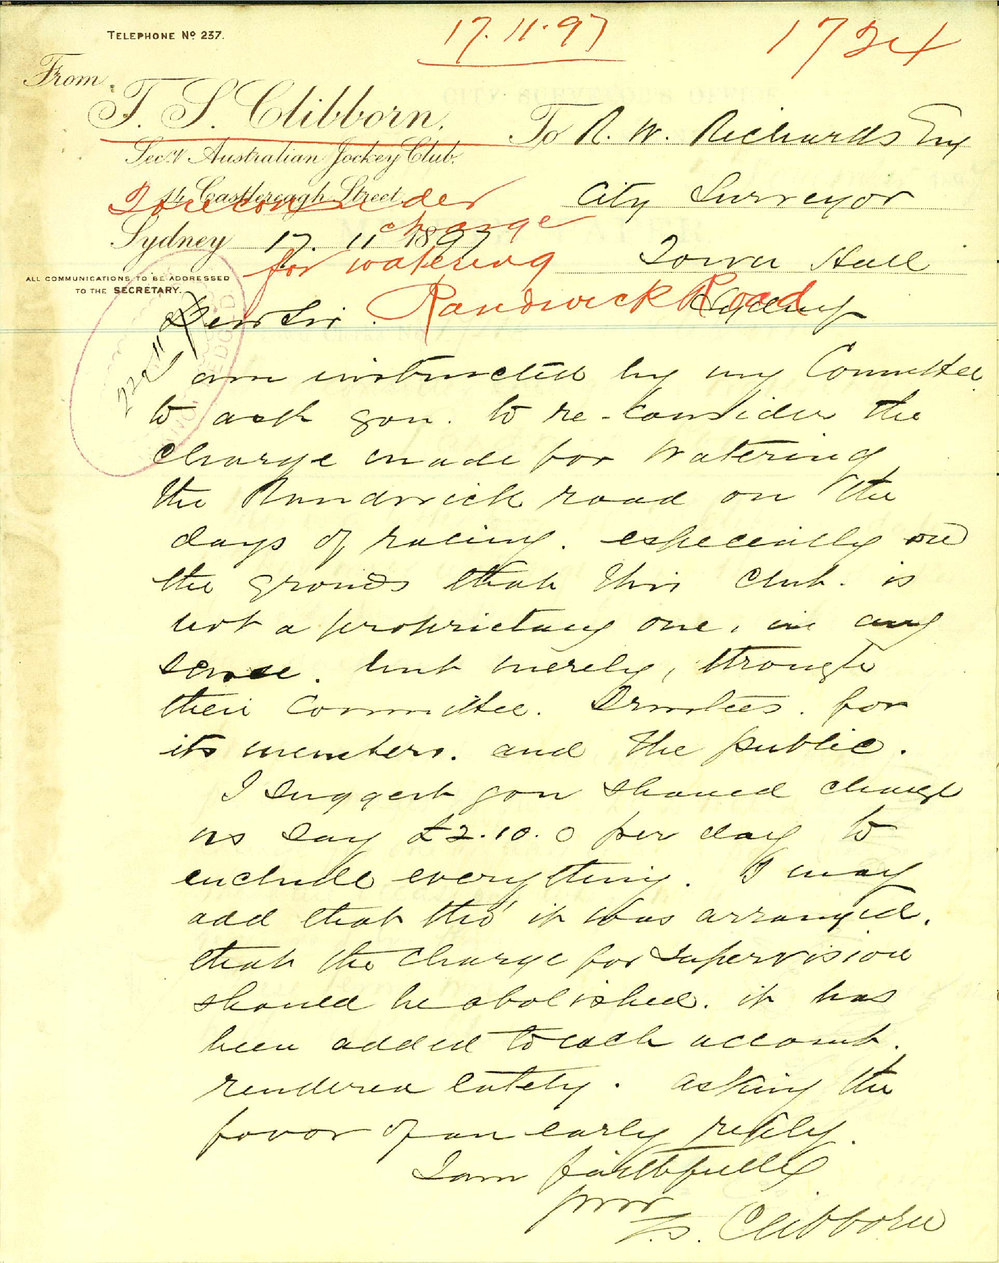 TELEPHONE No 237.
17.11.97
1724
From
T. S. Clibborn.
Secy. Australian Jockey Club.
14 Castlereagh Street.
Sydney 17. 11 1897
ALL COMMUNICATIONS TO BE ADDRESSED
TO THE SECRETARY.
To R. W. Richards Esq
City Surveyor
Town Hall
Sydney
To reconsider
charge
for watering
Randwick Road
22.11.97
Dear Sir.
I am instructed by my Committee
to ask you. to re-consider the
charge made for Watering
the Randwick road on the
days of racing. especially on
the grounds that this Club. is
not a proprietary one, in any
sense. but merely, through
their Committee. Trustees. for
its members. and the public.
I suggest you should charge
us say £2.10.0 per day to
include everything. I may
add that tho' it was arranged.
that the charge for supervision
should be abolished. it has
been added to each account.
rendered lately. asking the
favor of an early reply.
I am faithfully
yours
T.S. Clibborn